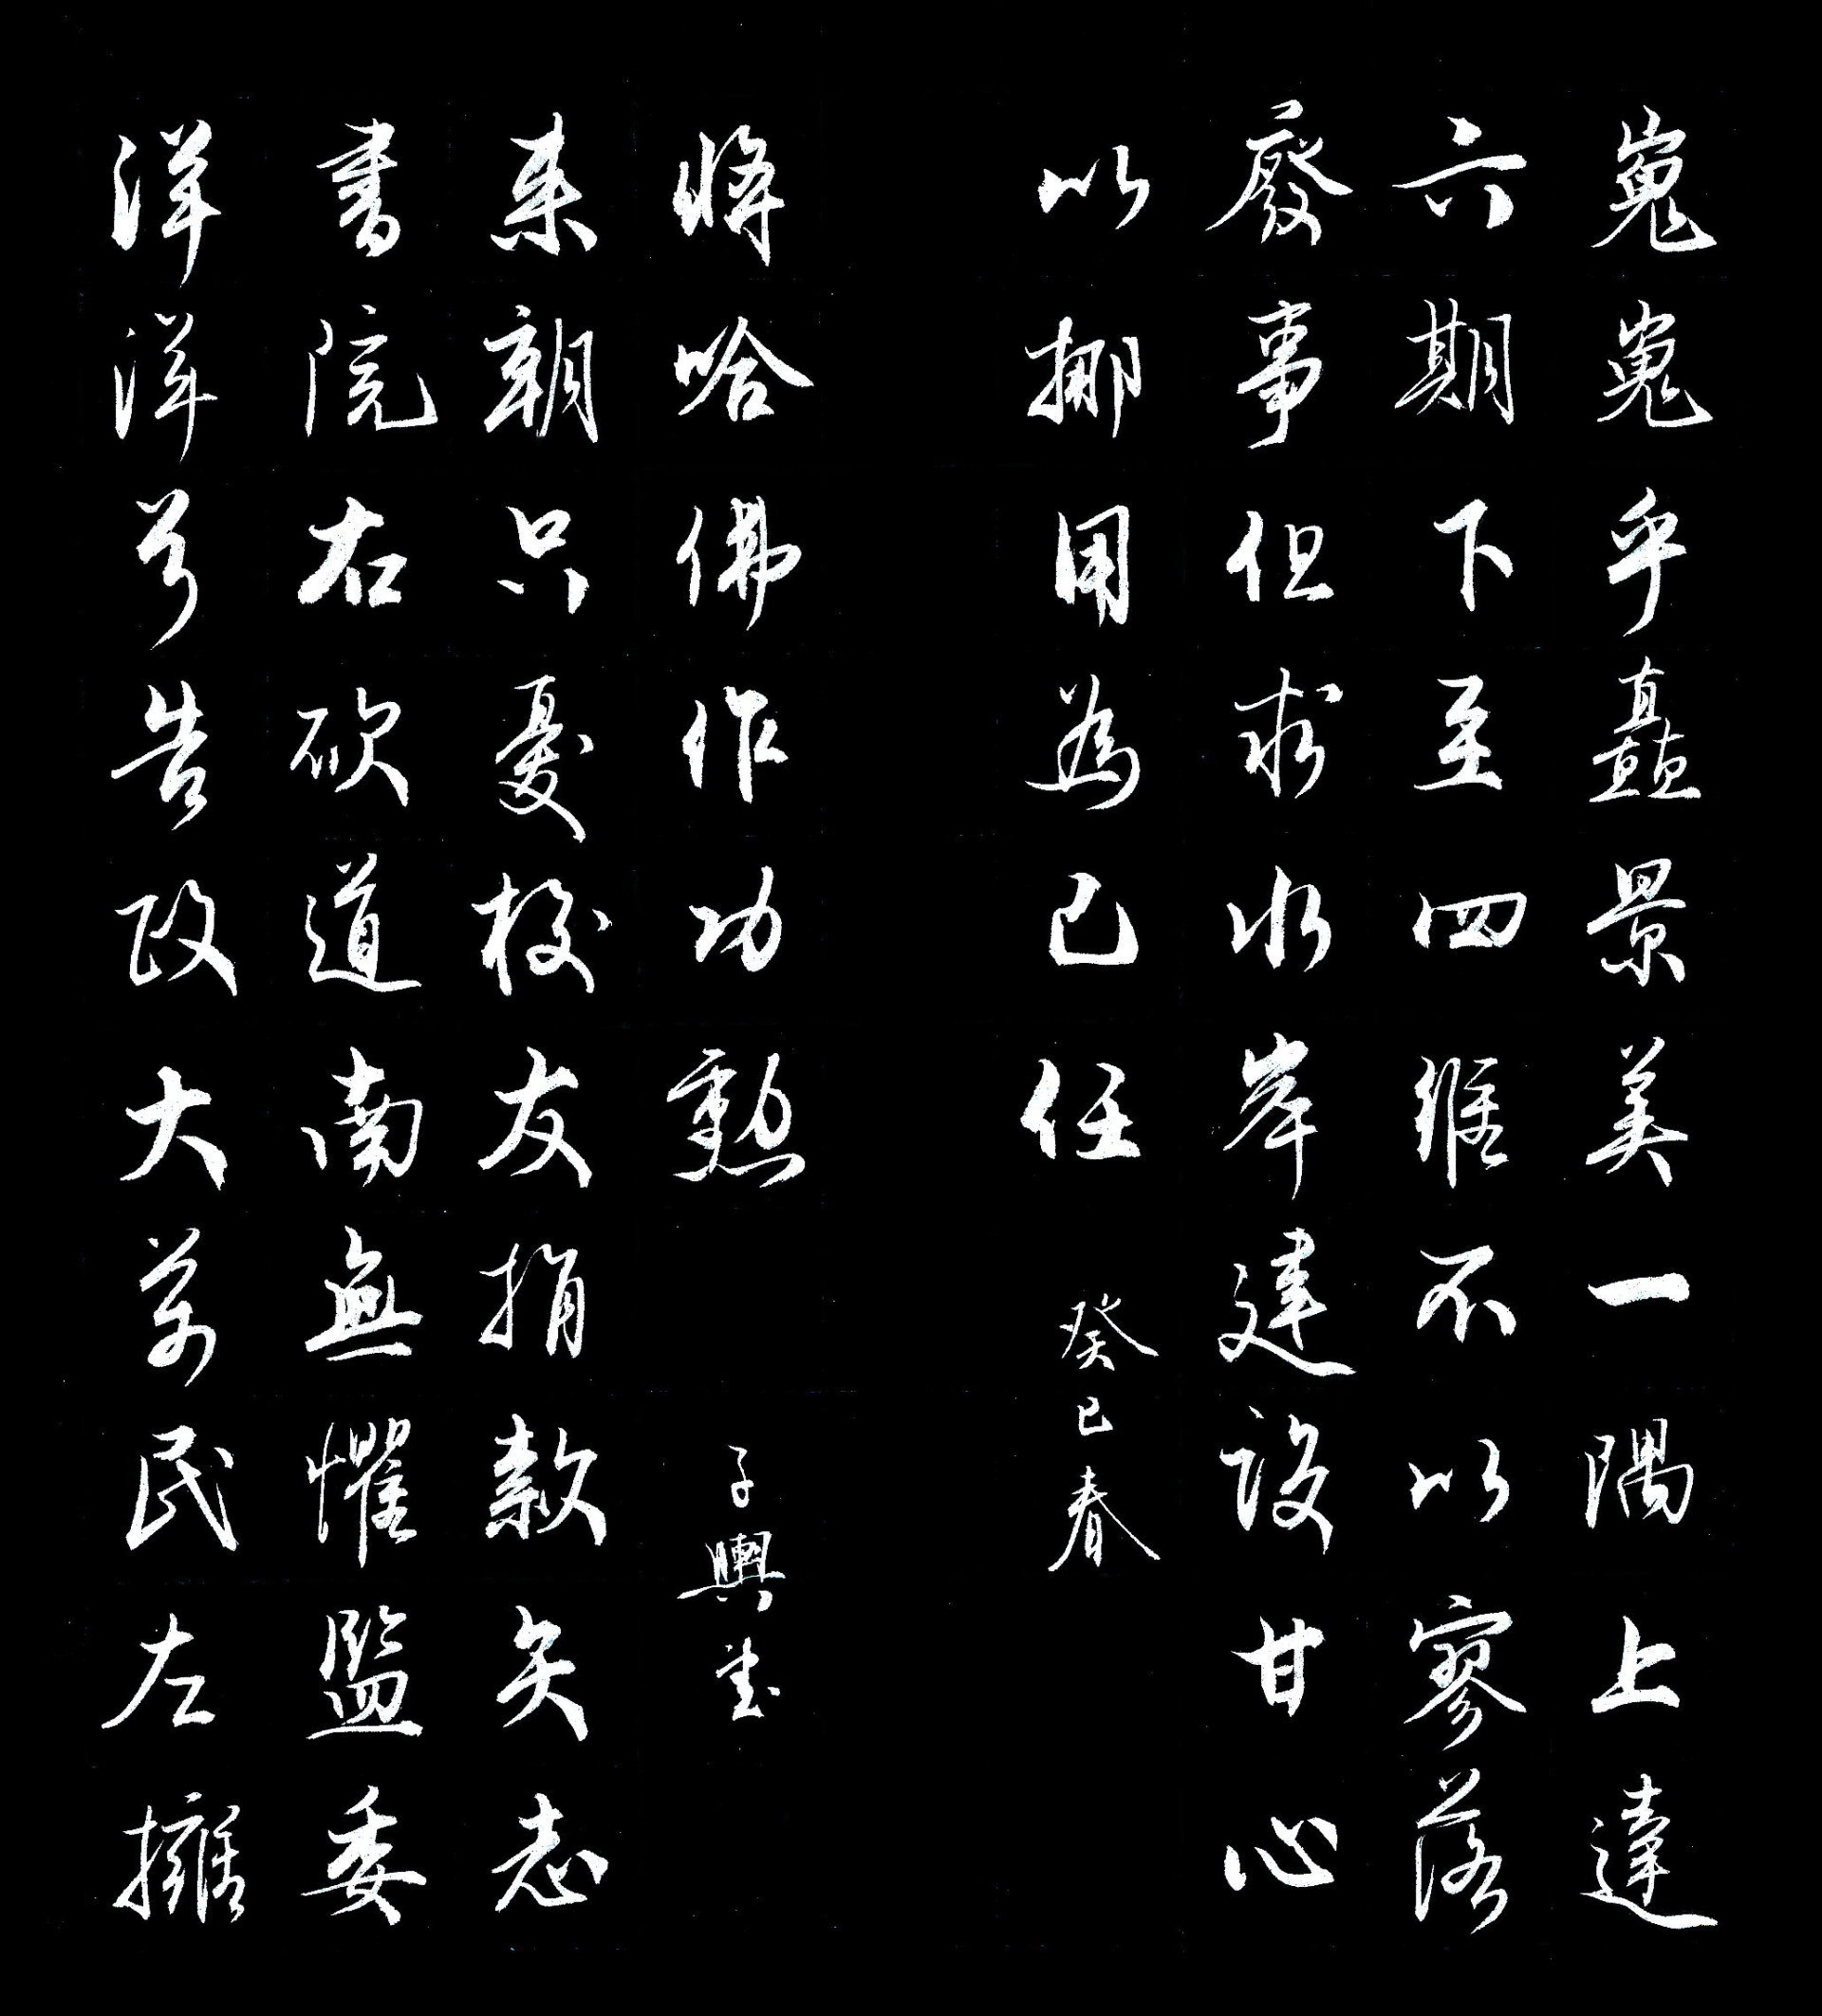 嵬嵬乎矗景美一隅上達
六期下至四維不以寥落
廢事但求水岸建設甘心
以挪用為己任
癸巳春
洋洋兮告政大萬民左擁
書院右砍道南無懼監委
来朝只憂校友捐款矢志
將哈佛作功勳
子輿